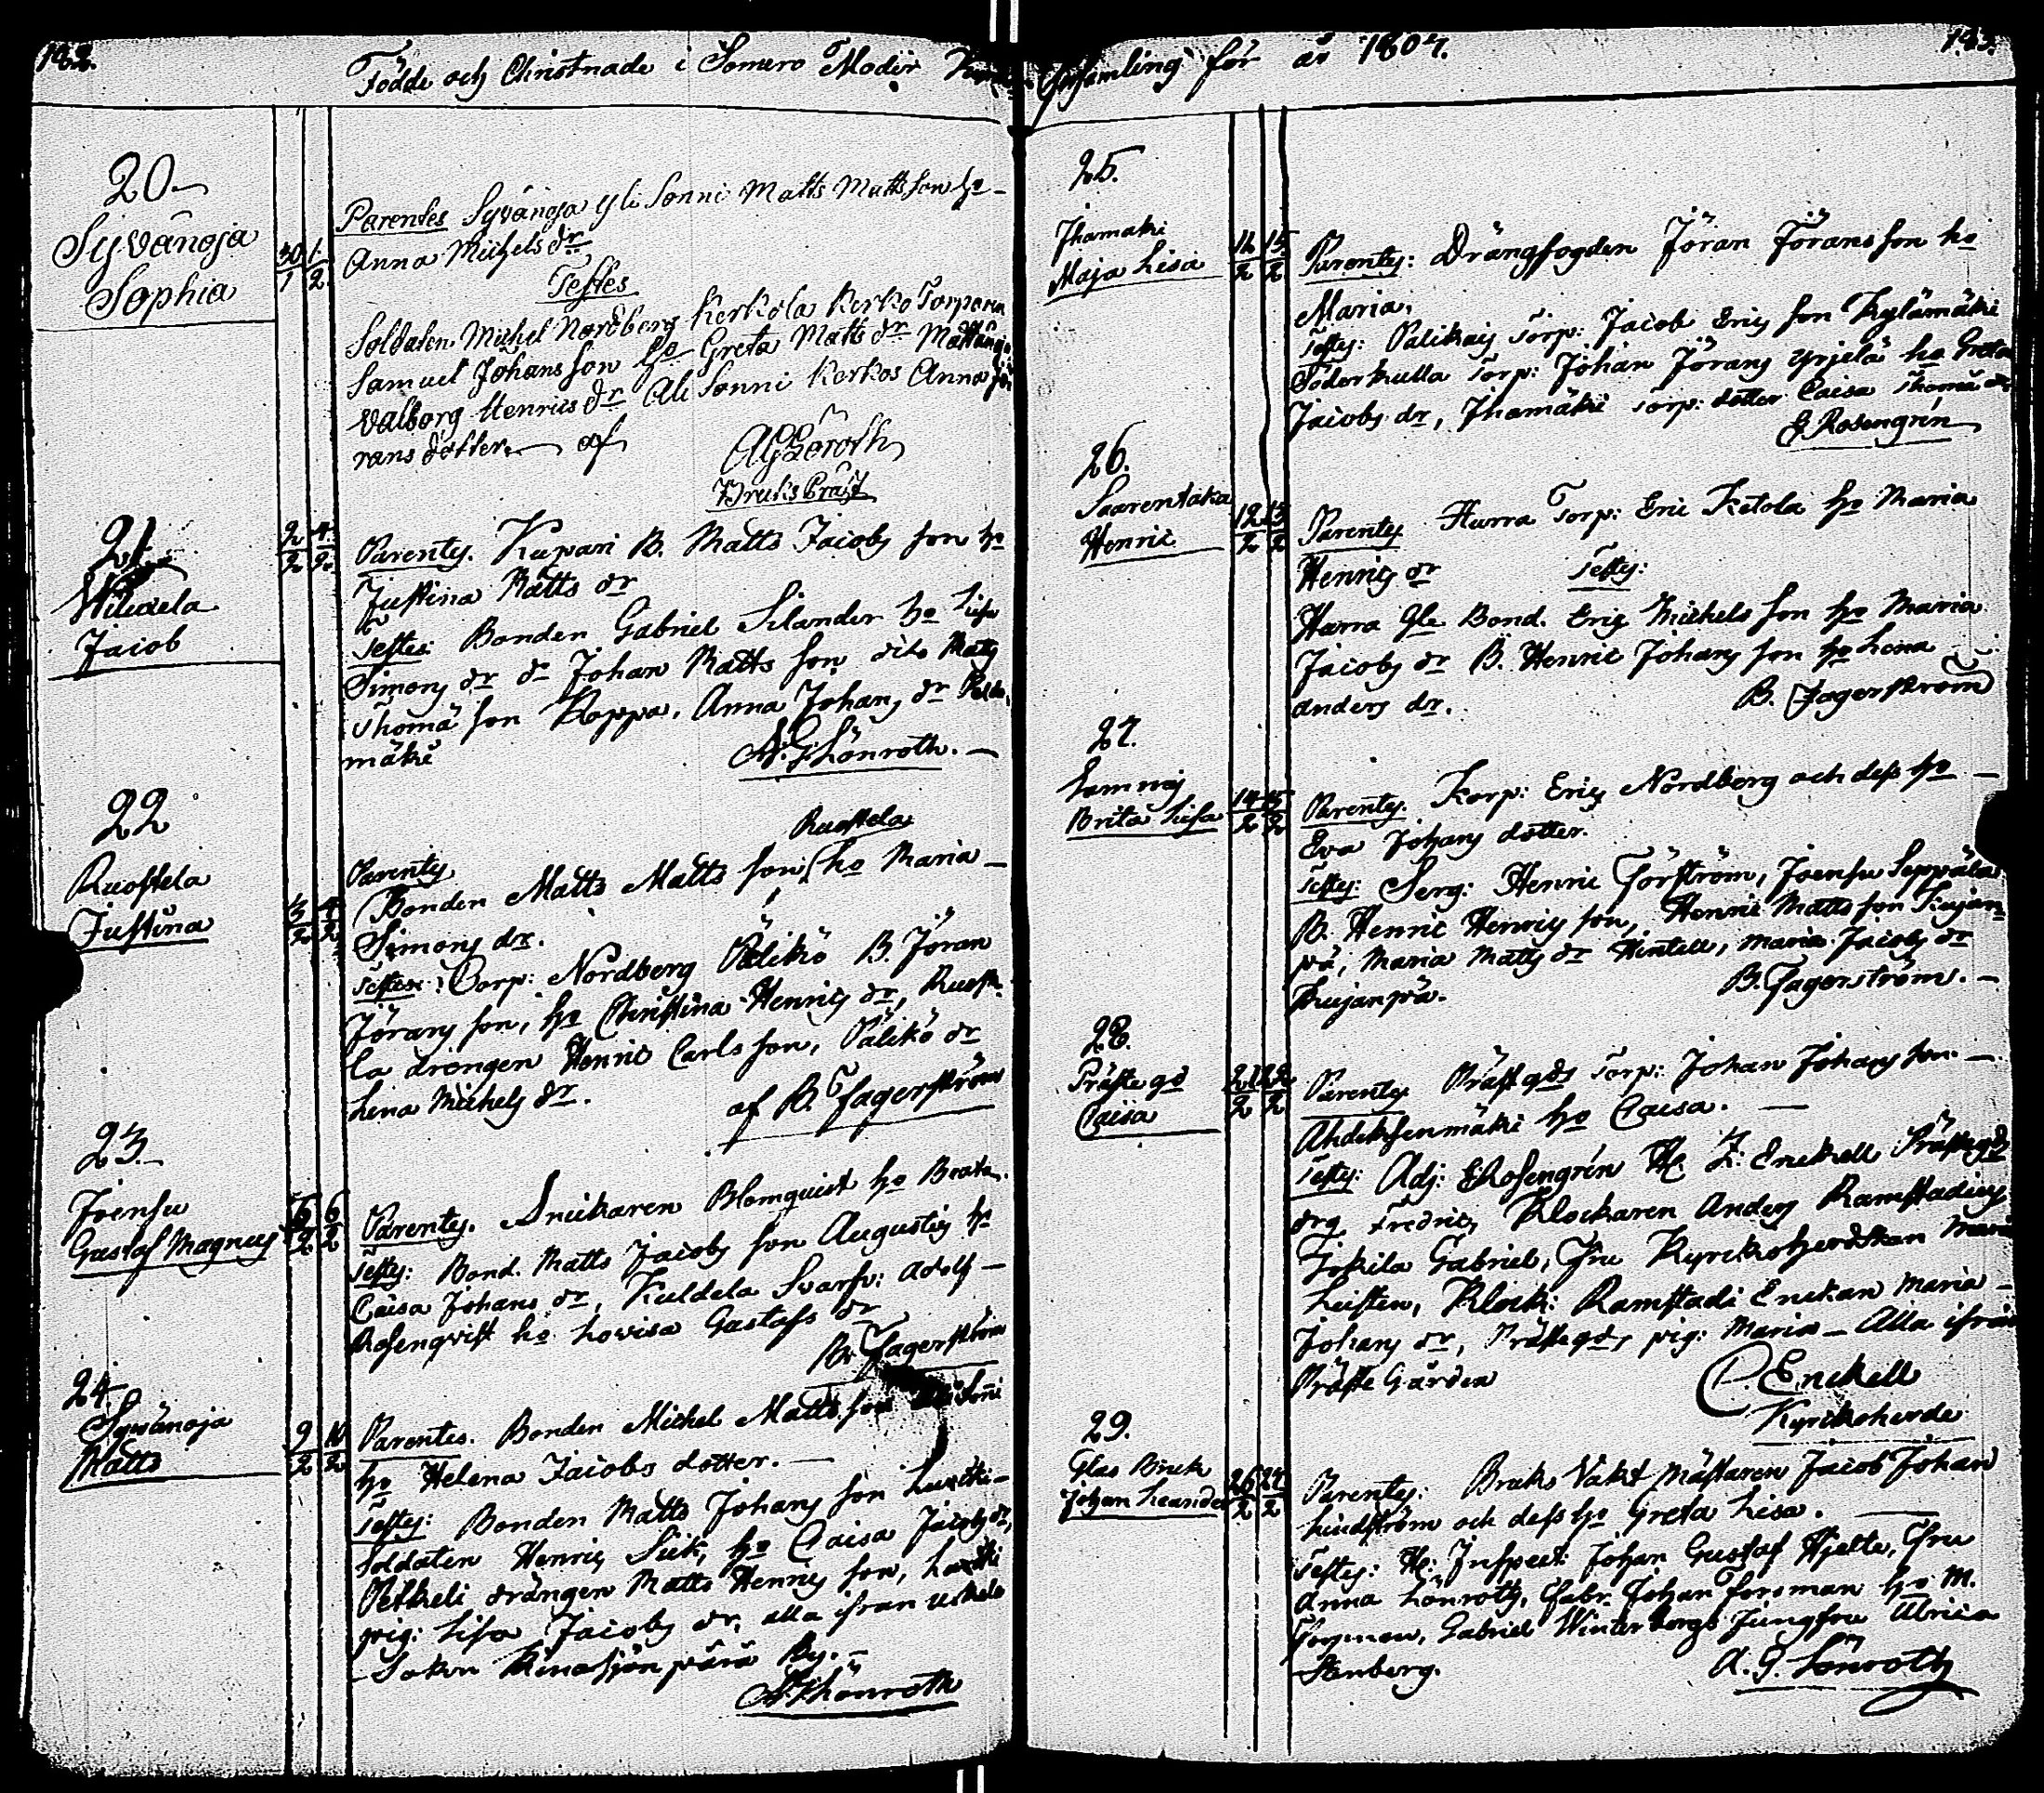 182.
Födde och Christnade i Somero Moder
20
Syvänoja
Sophia
30/1 1/2
Parentes Syvänoja yli Sonni Matts Mattsson ho
Anna Michelsdr
Testes
Soldaten Michel Nordberg Kerkola Kerko Torparen
Samuel Johansson ho Greta Matts dr
Valborg Henrics dr Ali Sonni Kerkos Anna Jö
rans dotter. af
AGLönroth
Bruks Präst
21.
Jacob
2/2 4/2
Parentes. Kupari B. Matts Jacobs son ho
Justina Matts dr
Testes: Bonden Gabriel Silander ho Lisa
Simons dr do Johan Matts son dito Matts
Thomä son Koppa, Anna Johans dr
mäki
A.G. Lönroth.
22
Ruostela
Justina
3/2 4/2
Ruostela
Parentes
Bonden Matts Matts son, ho Maria
Simons dr.
Testes: Corp: Nordberg Pälikö B. Jöran
Jörans son, ho Christina Henrics dr, Ruoste
la drengen Henric Carls son, Pälikö dr
Lena Michels dr.
af B. Fagerström
23.
Joensu
Gustaf Magnus
5/2 6/2
Parentes. Snickaren Blomquist ho Beata.
Testes: Bond. Matts Jacobs son Augustis ho
Caisa Johans dr, Kuldela Svarfv: Adolf
Rosenqvist ho Lovisa Gustafs dr
Br. Fagerström
24
Syvänoja
Matts
9/2 10/2
Parentes. Bonden Michel Matts son Sonni
ho Helena Jacobs dotter.
Testes: Bonden Matts Johans son
Soldaten Henric Siik, ho Caisa Jacobs dr,
Petkeli drängen Matts Henrics son,
pig: Lisa Jacobs dr, alla ifrån Uskela
Sokn Kinasjön pärä By.
A.G. Lönroth
Församling för år 1807.
183.
25.
Jhamäki
Maja Lisa
12/2 15/2
Parentes: Drängfogden Jöran Jöransson ho
Maria.
Testes: Palikais Torp: Jacob Erics son Kylämäki
Söderkulla Torp: Johan Jörans Yrjelä ho Greta
Jacobs dr, Jhamäki Torp: dotter Caisa Thomä dr
E Rosengrén
26.
Saarentaka
Henric
12/2 13/2
Parentes Harra Torp: Eric Ketola ho Maria
Henrics dr Testes:
Harra Bond. Eric Michels son ho Maria
Jacobs dr B. Henric Johans son ho Lena
Anders dr.
B. Fagerström
27.
Brita Lisa
14/2 15/2
Parentes. Korp: Eric Nordberg och dess ho
Eva Johans dotter.
Testes: Serg: Henric Forström, Joensu Seppälä
B. Henric Henrics son, Henric Matts son Kujan
pä, Maria Matts dr Hintell, Maria Jacobs dr
Kujanpä.
B. Fagerström.
28.
Prästegd
Caisa
21/2 22/2
Parentes Prästgds Torp: Johan Johans son
Ahdeksenmäki ho Caisa.
Testes: Adj: E Rosengrén H. Z: Enckell Prästegds
drg. Fredric, Klockaren Anders Ramstadius
Jokila Gabriel, Fru Kyrkoherdskan Maria
Leisten, Klock: Ramstadi Enckan Maria
Johans dr, Prästegds pig: Maria – Alla ifrån
Präste Gården
C. Enckell
Kyrkoherde
29.
Glas Bruk
Johan Leander
26/2 27/2
Parentes: Bruks Vakt Mästaren Jacob Johan
Lindström och dess ho Greta Lisa.
Testes: H: Inspect: Johan Gustaf Hjelte, Fru
Anna Lönroth, Fabr. Johan Forsman ho M.
Forsman, Gabriel Winterbergs Jungfru Ulrica
Stenberg.
A. G. Lönroth